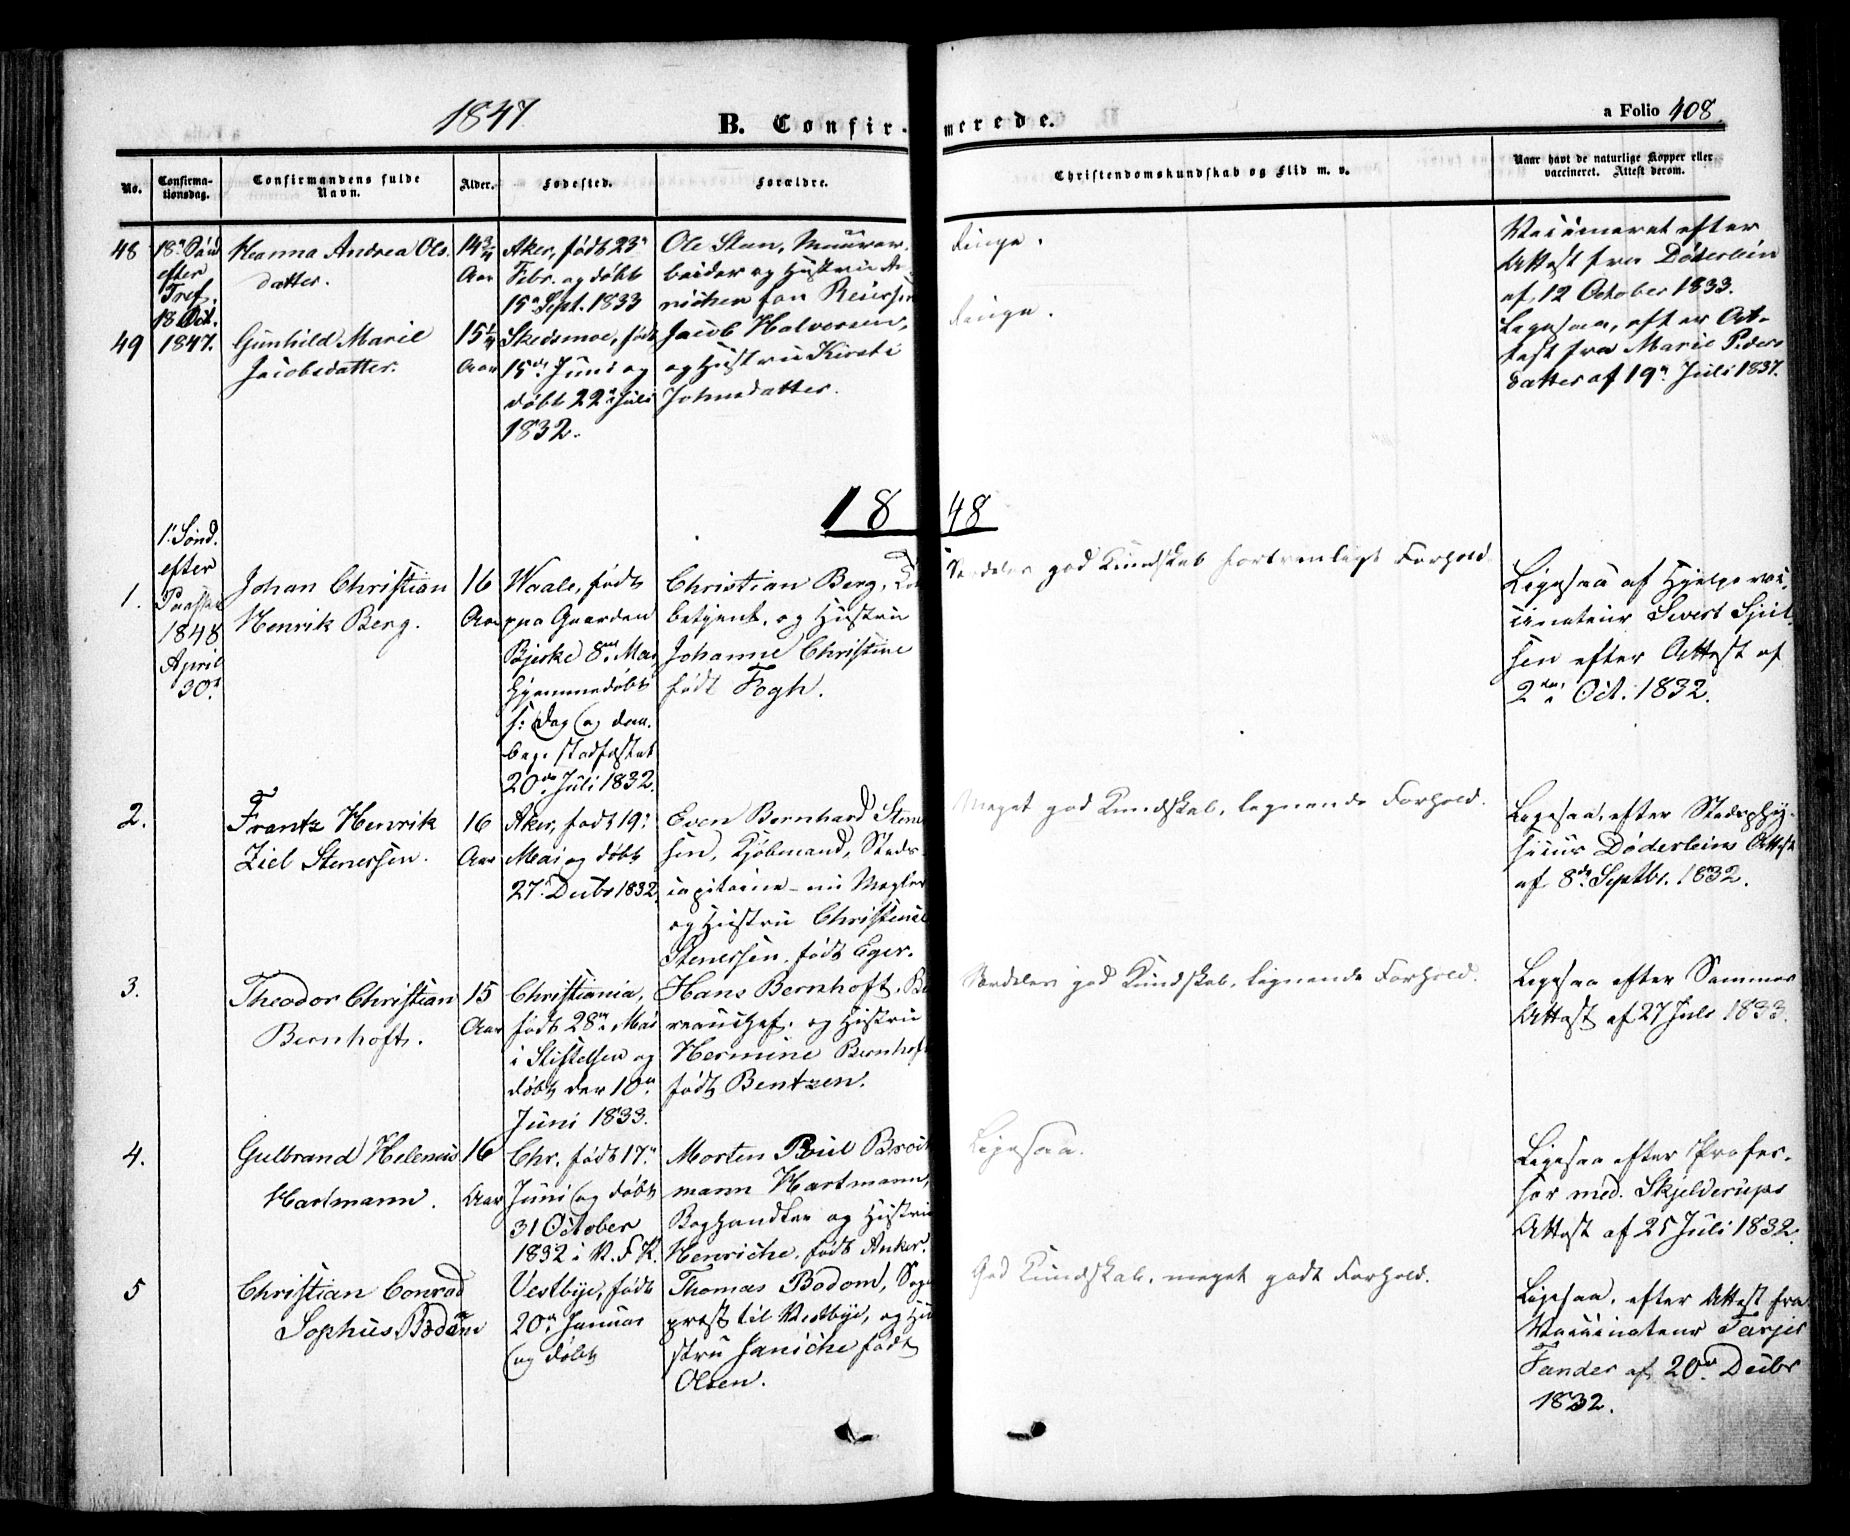 1847
B. Confir-merede.
a Folio 408.
No.
Confirma-
tionsdag.
Confirmandens fulde
Navn.
Alder.
Fødested.
Forældre.
Christendomskundskab og Flid m. v.
Naar havt de naturlige Kopper eller
vaccineret. Attest derom.
48
18de Sønd
efter
Tref.
18 Oct.
1847.
Hanna Andrea Ols
datter.
14 3/4
Aar
Aker, født 23de
Febr. og døbt
15de Sept. 1833
Ole Sten, Murar
beider og Hustru An
nichen Reiersen
Ringe.
Vaccineret efter
Attest fra Døderlein
af 12 October 1833.
49
Gunhild Marie
Jacobsdatter.
15 1/4
Aar
Skedsmoe, født
15de Juni og
døbt 22de Juli
1832.
Jacob Halvorsen,
og Hustru Kirsti
Johnsdatter.
Ringe.
Ligesaa, efter At-
test fra Marie Peders
datter af 19de Juli 1837.
1848
1.
1. Sønd.
efter
Paaske
1848
April
30te
Johan Christian
Henrik Berg.
16
Aar
Waale, født
paa Gaarden
Bjerke 8de Mai,
hjemmedøbt
s: Dag og den.
stadfæstet
20de Juli 1832.
Christian Berg,
betjent, og Hustru
Johanne Christine
født Fogh.
Særdeles god Kundskab fortrinligt Forhold.
Ligesaa af Hjelpevac
cinateur Sivert Sjul
sen efter Attest af
2den Oct. 1832.
2.
Frantz Henrik
Ziel Stenersen.
16
Aar
Aker, født 19de
Mai og døbt
27de Decbr 1832.
Even Bernhard Stener
sen, Kjøbmand, Stads-
capitaine - nu Megler
og Hustru Christine
Stenersen født Eger.
Meget god Kundskab, lignende Forhold.
Ligesaa, efter Stadsphy-
sicus Døderleins Attest
af 8de Septbr. 1832.
3.
Theodor Christian
Bernhoft.
15
Aar
Christiania,
født 28de Mai
i Stiftelsen og
døbt den 10de
Juni 1833.
Hans Bernhoft, Bu
reauchef, og Hustru
Hermine Bernhoft
født Bentzen.
Særdeles god Kundskab, lignende Forhold.
Ligesaa efter Samme
Attest af 27 Juli 1833.
4.
Gulbrand Helenus
Hartmann.
16
Aar
Chr. født 17de
Juni og døbt
31 October
1832 i V. F. K.
Morten Poul Broch
mann Hartmann,
Boghandler og Hustru
Henriche, født Anker.
Ligesaa.
Ligesaa efter Profes-
sor med. Skjelderups
Attest af 25 Juli 1832.
5
Christian Conrad
Sophus Bødom
Vestbye, født
20de Januar
og døbt
Thomas Bødom, Sogne
prest til Vestbye, og Hu
stru Janiche født
Olsen.
God Kundskab, meget godt Forhold.
Ligesaa, efter Attest fra
Vaccinateur Terjer
Fander af 20de Decbr
1832.